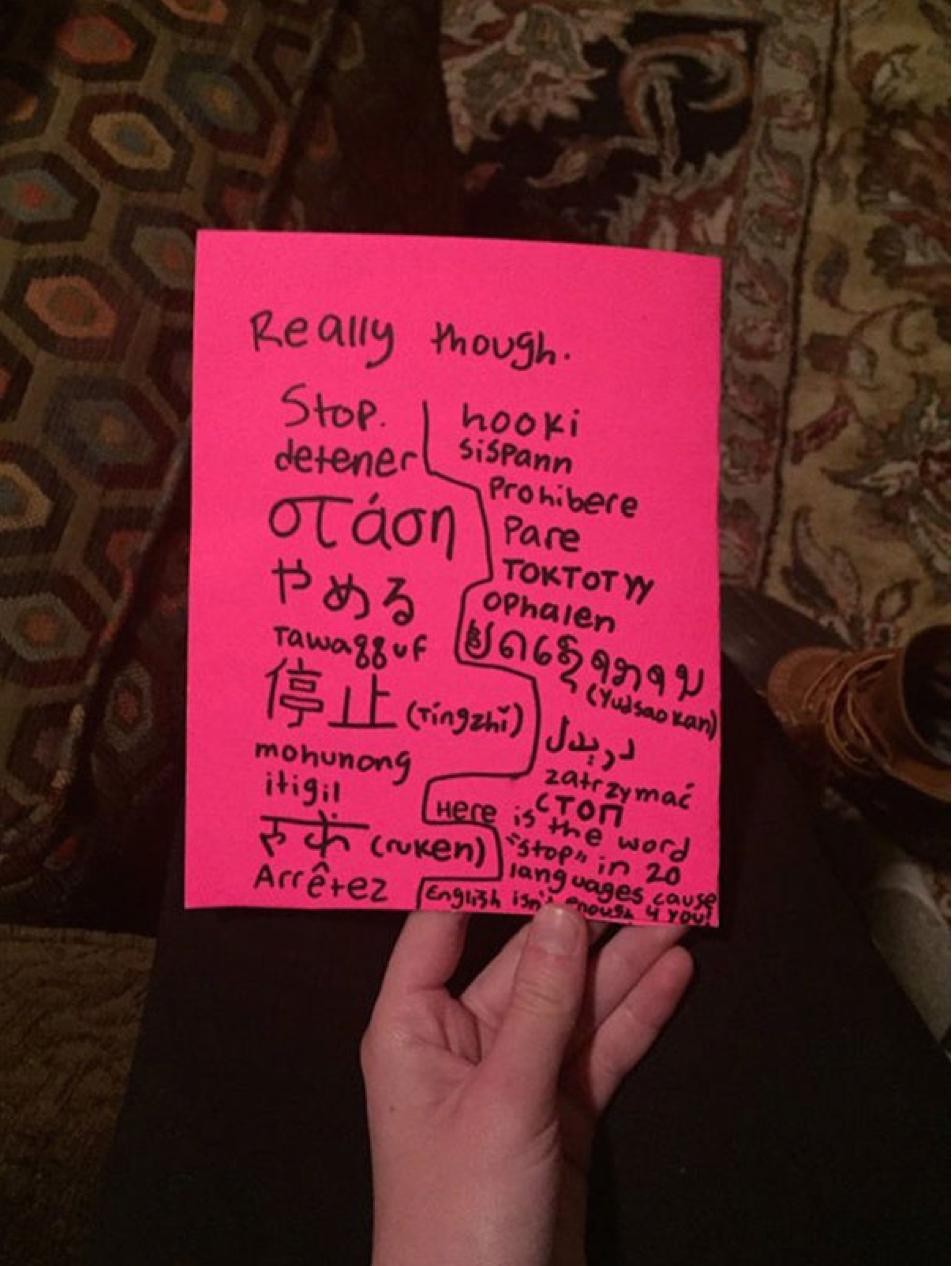 Really though.
Stop.
detener
στάση
やめる
Tawagguf
停止 (Tíngzhǐ)
mohunong
itigil
रुकें (ruken)
Arrêtez
hooki
sispann
Prohibere
Pare
TOKTOTYY
Ophalen
(Yudsaokan)
zatrzymać
СТОП
Here is the word
"stop" in 20
languages cause
English isn't enough 4 you!